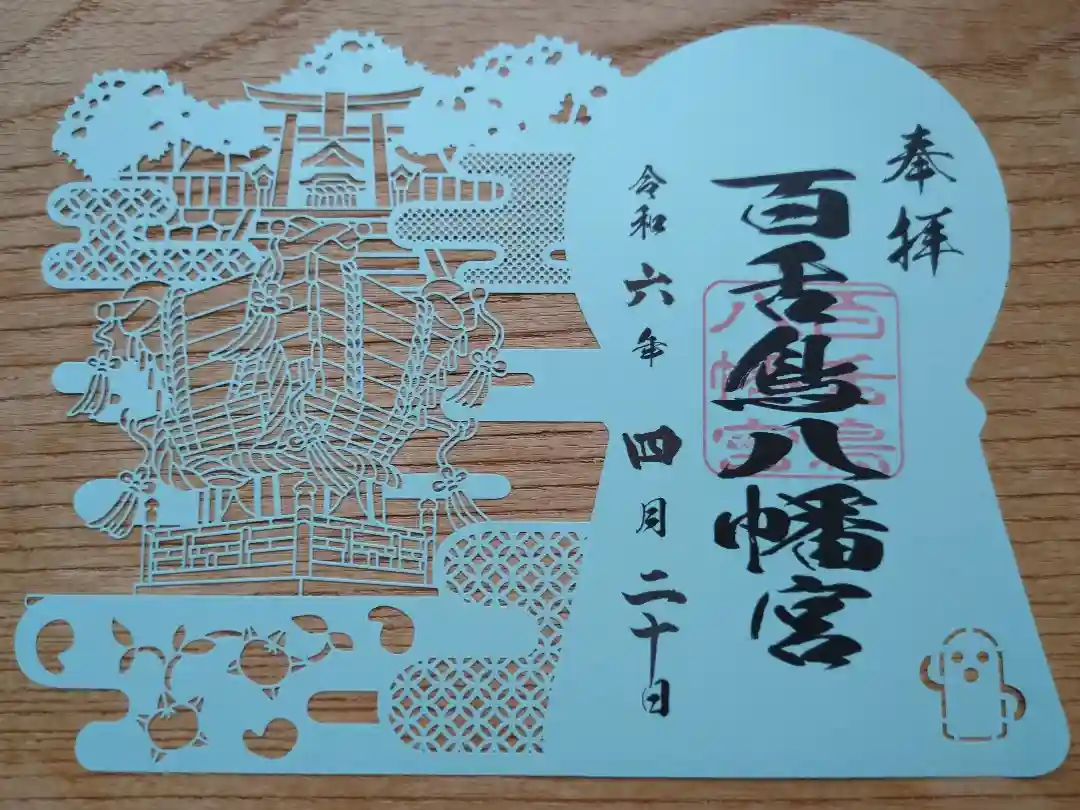 奉拝
百舌鳥八幡宮
百舌鳥八幡宮
令和六年四月二十日